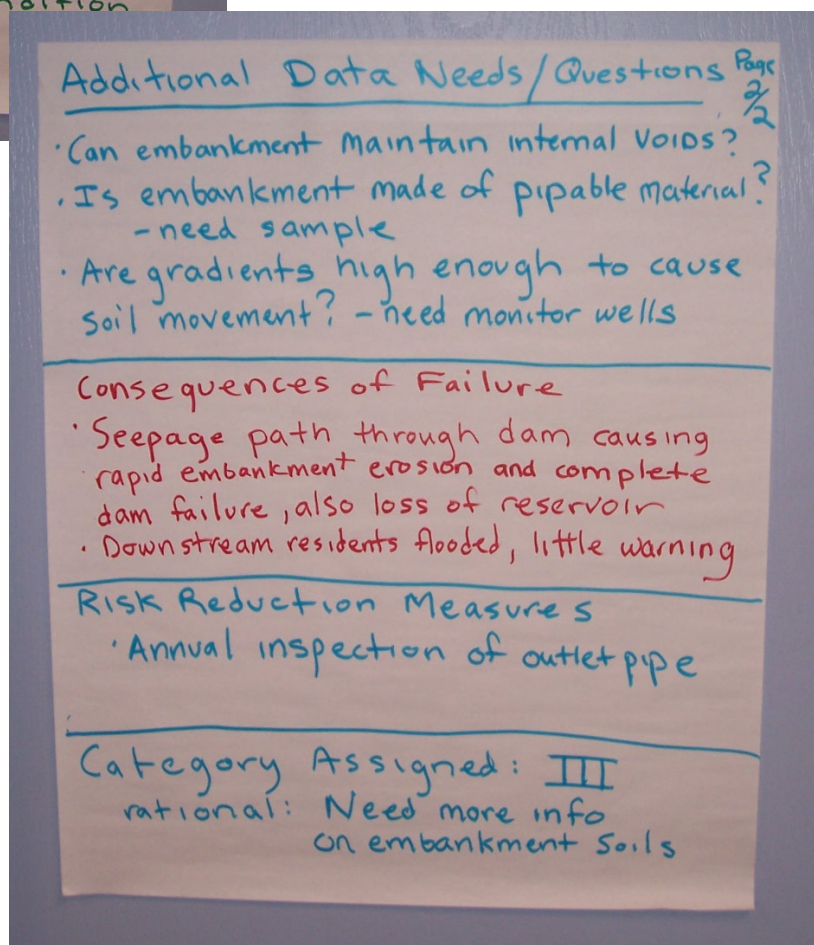 Additional Data Needs/Questions Page 2/2
· Can embankment maintain internal VOIDS?
· Is embankment made of pipable material?
- need sample
· Are gradients high enough to cause
soil movement? - need monitor wells
Consequences of Failure
· Seepage path through dam causing
rapid embankment erosion and complete
dam failure, also loss of reservoir
· Downstream residents flooded, little warning
Risk Reduction Measures
· Annual inspection of outlet pipe
Category Assigned: III
rational: Need more info
on embankment soils